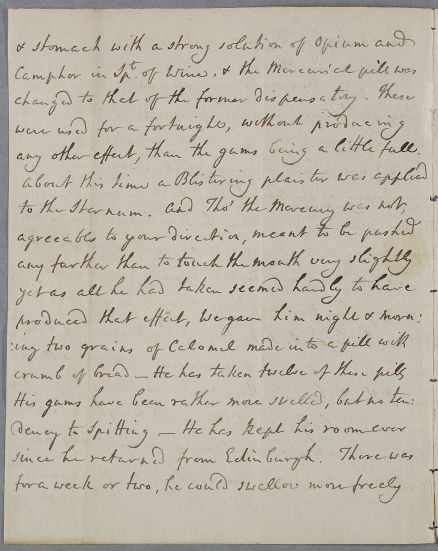 & stomach with a strong solution of Opium and
Camphor in Spt. of Wine. & the Mercurial pill was
changed to that of the former dispensatory. These
were used for a fortnight, without producing
any other effect, than the gums being a little full,
about this time a Blistering plaister was applied
to the Sternum. And Tho' the Mercury was not,
agreeable to your direction, meant to be pushed
any further than to touch the mouth very slightly
yet as all he had taken seemed hardly to have
produced that effect, We gave him night & morn:
:ing two grains of Calomel made into a pill with
crumb of bread — He has taken twelve of these pills
His gums have been rather more swelled, but no ten:
dency to Spitting — He has kept his room ever
since he returned from Edinburgh. There was
for a week or two, he could swallow more freely